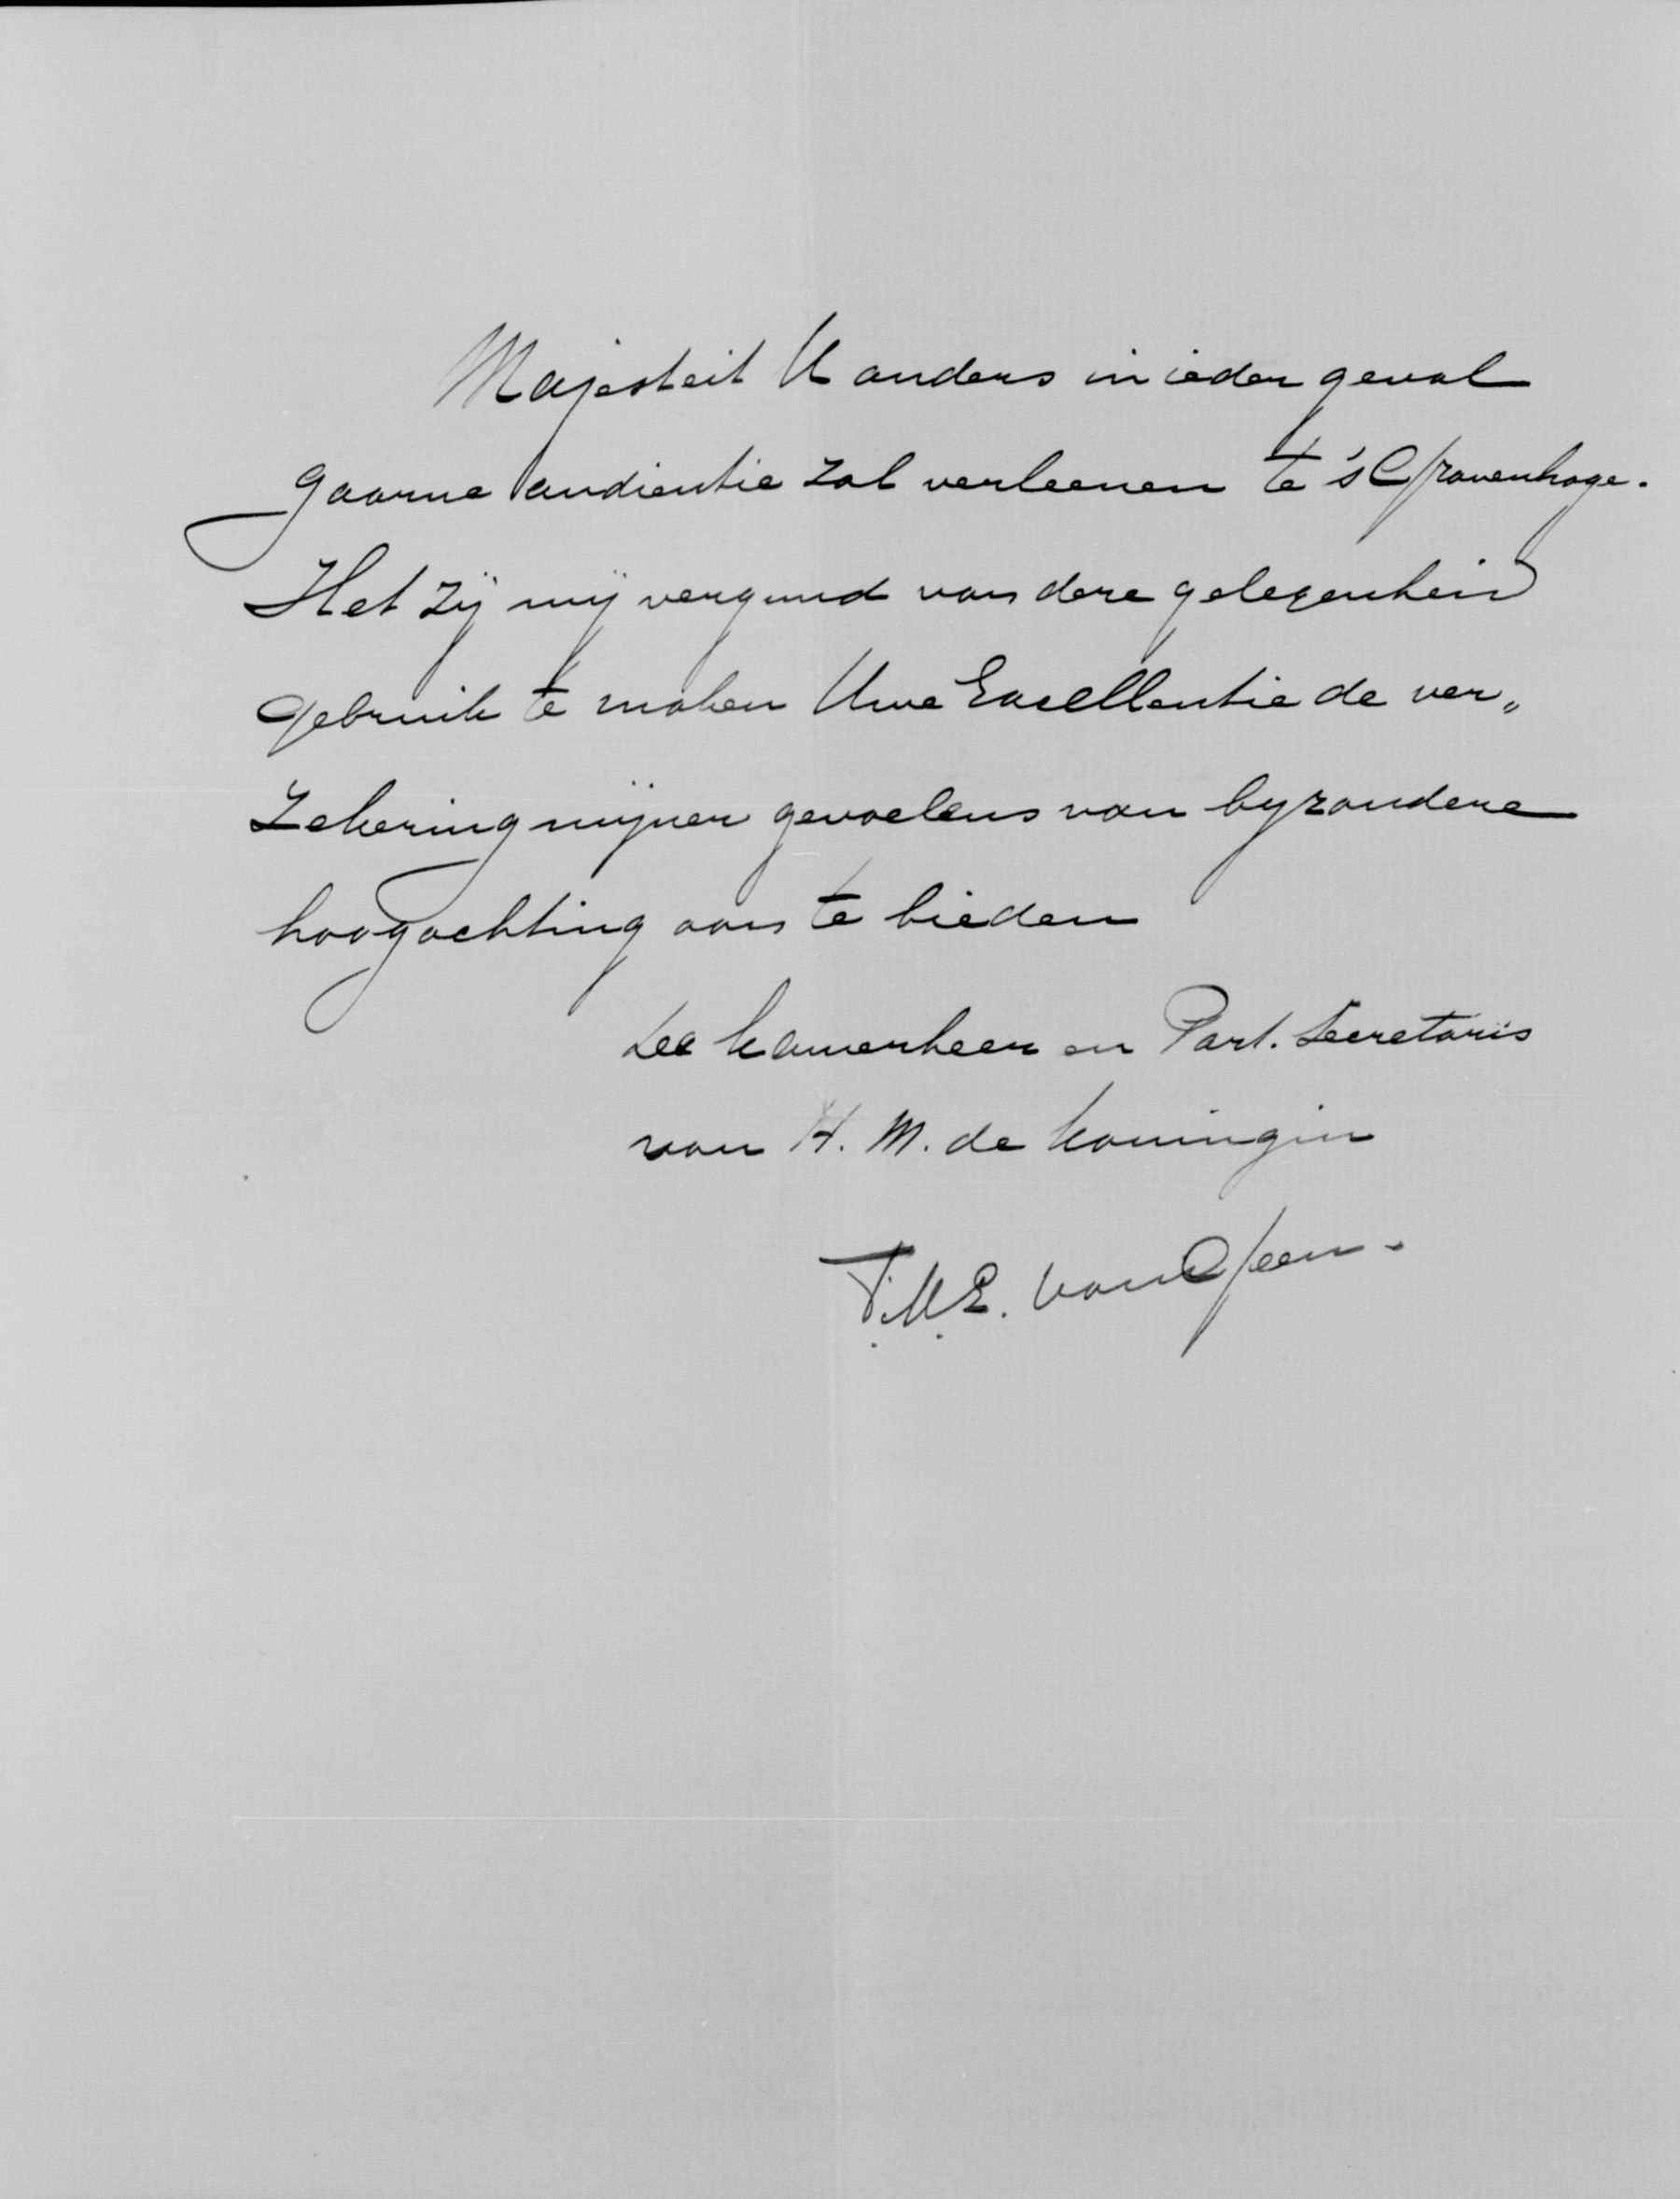 Majesteit U anders in ieder geval
gaarne audientie zal verleenen te 's Gravenhage.
Het zij mij vergund van deze gelegenheid
gebruik te maken Uwe Excellentie de ver„
zekering mijner gevoelens van byzondere
hoogachting aan te bieden
De Kamerheer en Part. Secretaris
van H. M. de Koningin
F.M.E. van Geen.